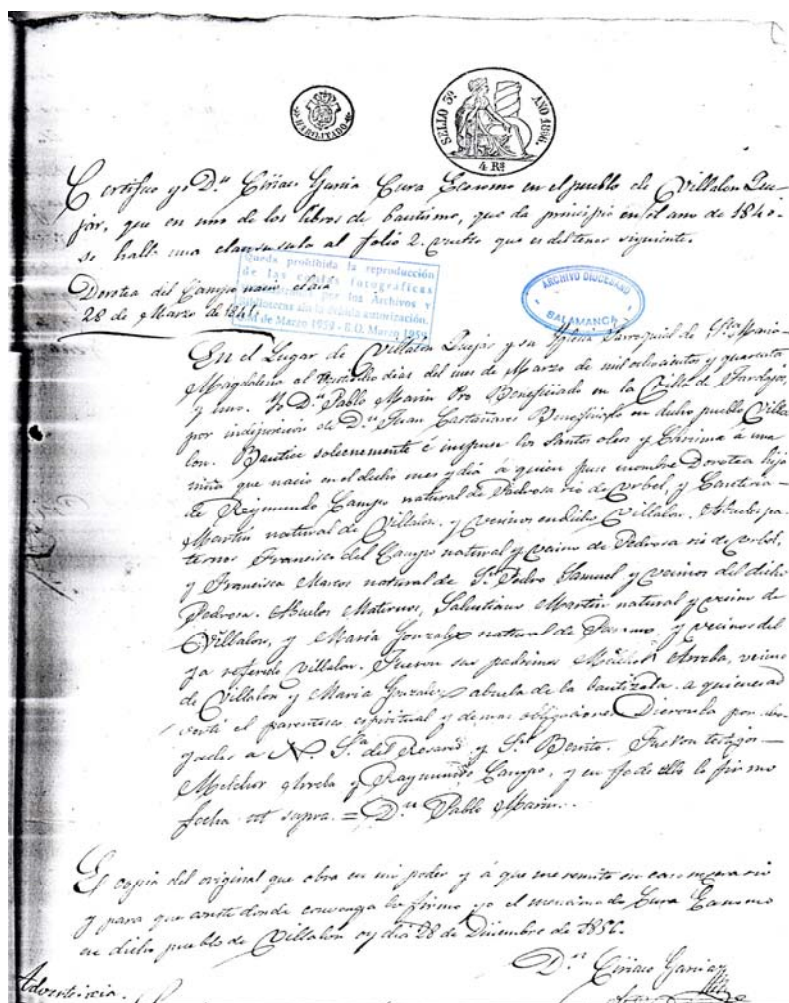 HABILITADO
SELLO 3º AÑO 1856.
4 Rs
Certifico yo Dn Ciriaco Garcia Cura Economo en el pueblo de Villalon Que-
jar, que en uno de los libros de bautismo, que da principio en el ano de 1840.
se halla una claususula al folio 2. vuelto que es del tenor siguiente.
Queda prohibida la reproducción
de las copias fotográficas
por los Archivos y
Bibliotecas sin la debida autorización.
de Marzo 1959 - B.O. Marzo 1959
ARCHIVO DIOCESANO
SALAMANCA
Dorotea del Campo nacio el dia
28 de Marzo de 1841.
En el Lugar de Villalon Quejar y su Yglesia Parroquial de Sta Maria
Magdalena al veintiocho dias del mes de Marzo de mil ochocientos y quarenta
y uno. Yo Dn Pablo Marin Pro Beneficiado en la Villa de Tardajos,
por indisposicion de Dn Juan Castañares Beneficiado en dicho pueblo Villa
lon. Bautice solemnemente é impuse los Santos oleos y Crisma á una
niña que nacio en el dicho mes y dia á quien puse nombre Dorotea hija
de Reymundo Campo natural de Pedrosa rio de Urbel, y
Martin natural de Villalon. y vecinos en dicho Villalon. Abuelos pa-
ternos Francisco del Campo natural y vecino de Pedrosa rio de Urbel,
y Francisca Marcos natural de Sn Pedro Samuel y vecinos del dicho
Pedrosa. Abuelos Maternos, Salustiano Martin natural y vecino de
Villalon, y Maria Gonzalez natural de y vecinos del
ya referido Villalon. Fueron sus padrinos Melchor Arreba, vecino
de Villalon y Maria Gonzalez abuela de la bautizada. a quienes ad
verti el parentesco espiritual y demas obligaciones. Dieronla por abo-
gados a N. Sa del Rosario y Sn Benito. Fueron testigos
Melchor Arreba y Raymundo Campo, y en fe de ello lo firmo
fecha ut supra. = Dn Pablo Marin.
Es copia del original que obra en mi poder y á que me remito en caso necesario
y para que conste donde convenga lo firmo yo el mencionado Cura Economo
en dicho pueblo de Villalon oy dia 28 de Diciembre de 1856.
Dn Ciriaco Garcia
Advertencia.